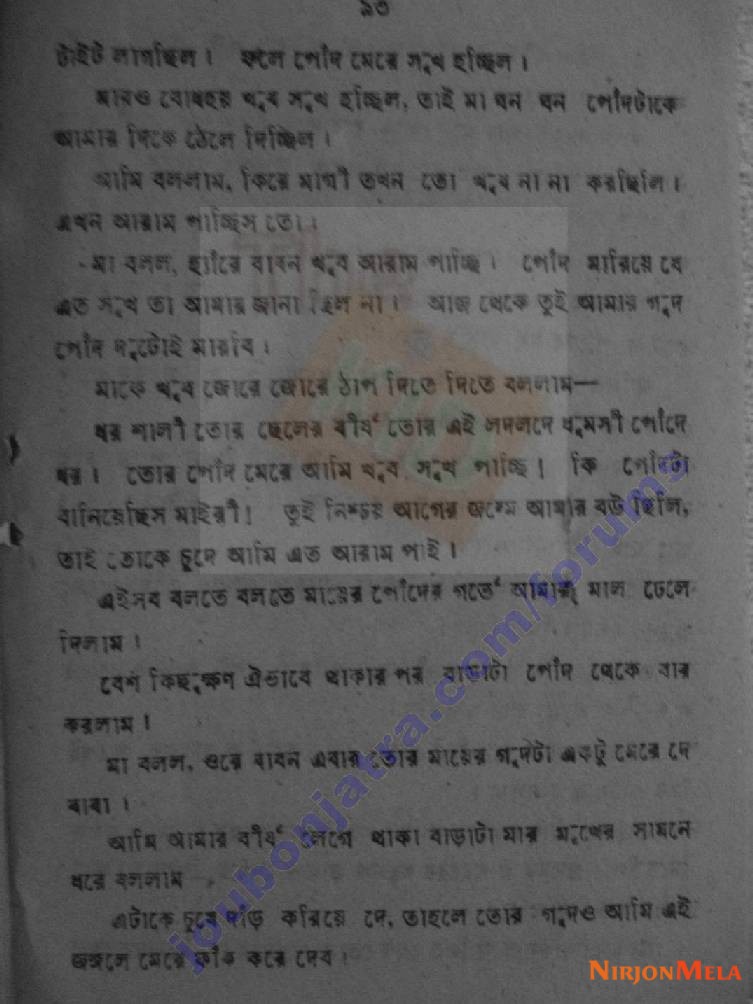 ৯৩
টাইট লাগছিল। ফলে পোঁদ মেরে সুখ হচ্ছিল।
মারও বোধহয় খুব সুখ হচ্ছিল, তাই মা ঘন ঘন পোঁদটাকে
আমার দিকে ঠেলে দিচ্ছিল।
আমি বললাম, কিরে মাগী তখন তো খুব না না করছিলি।
এখন আরাম পাচ্ছিস তো।
-মা বলল, হ্যাঁরে বাবন খুব আরাম পাচ্ছি। পোঁদ মারিয়ে যে
এত সুখ তা আমার জানা ছিল না। আজ থেকে তুই আমার গুদ
পোঁদ দুটোই মারবি।
মাকে খুব জোরে জোরে ঠাপ দিতে দিতে বললাম—
ধর শালী তোর ছেলের বীর্য তোর এই লদলদে ধুমসী পোঁদে
ধর। তোর পোঁদ মেরে আমি খুব সুখ পাচ্ছি। কি পোঁদটা
বানিয়েছিস মাইরী! তুই নিশ্চয় আগের জন্মে আমার বউ ছিলি,
তাই তোকে চুদে আমি এত আরাম পাই।
এইসব বলতে বলতে মায়ের পোঁদের গর্তে আমার মাল ঢেলে
দিলাম।
বেশ কিছুক্ষণ ঐভাবে থাকার পর বাড়াটা পোঁদ থেকে বার
করলাম।
মা বলল, ওরে বাবন এবার তোর মায়ের গুদটা একটু মেরে দে
বাবা।
আমি আমার বীর্য লেগে থাকা বাড়াটা মার মুখের সামনে
ধরে বললাম—
এটাকে চুষে দাঁড় করিয়ে দে, তাহলে তোর গুদও আমি এই
মেরে ফাঁক করে দেব।
joubonjatra.com/forums
NIRJONMELA